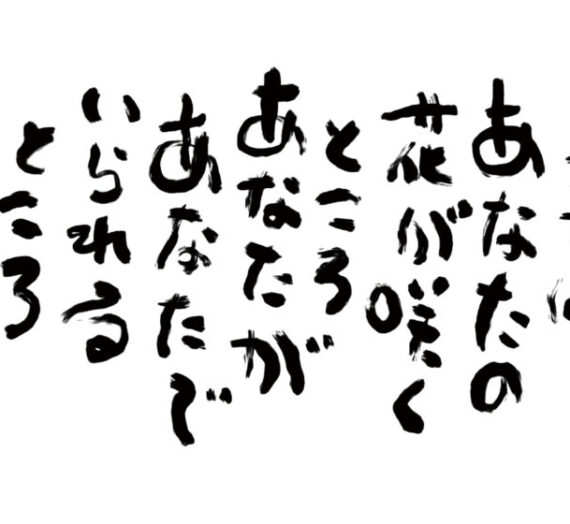 あなたの
花が咲く
ところ
あなたが
あなたで
いられる
ところ